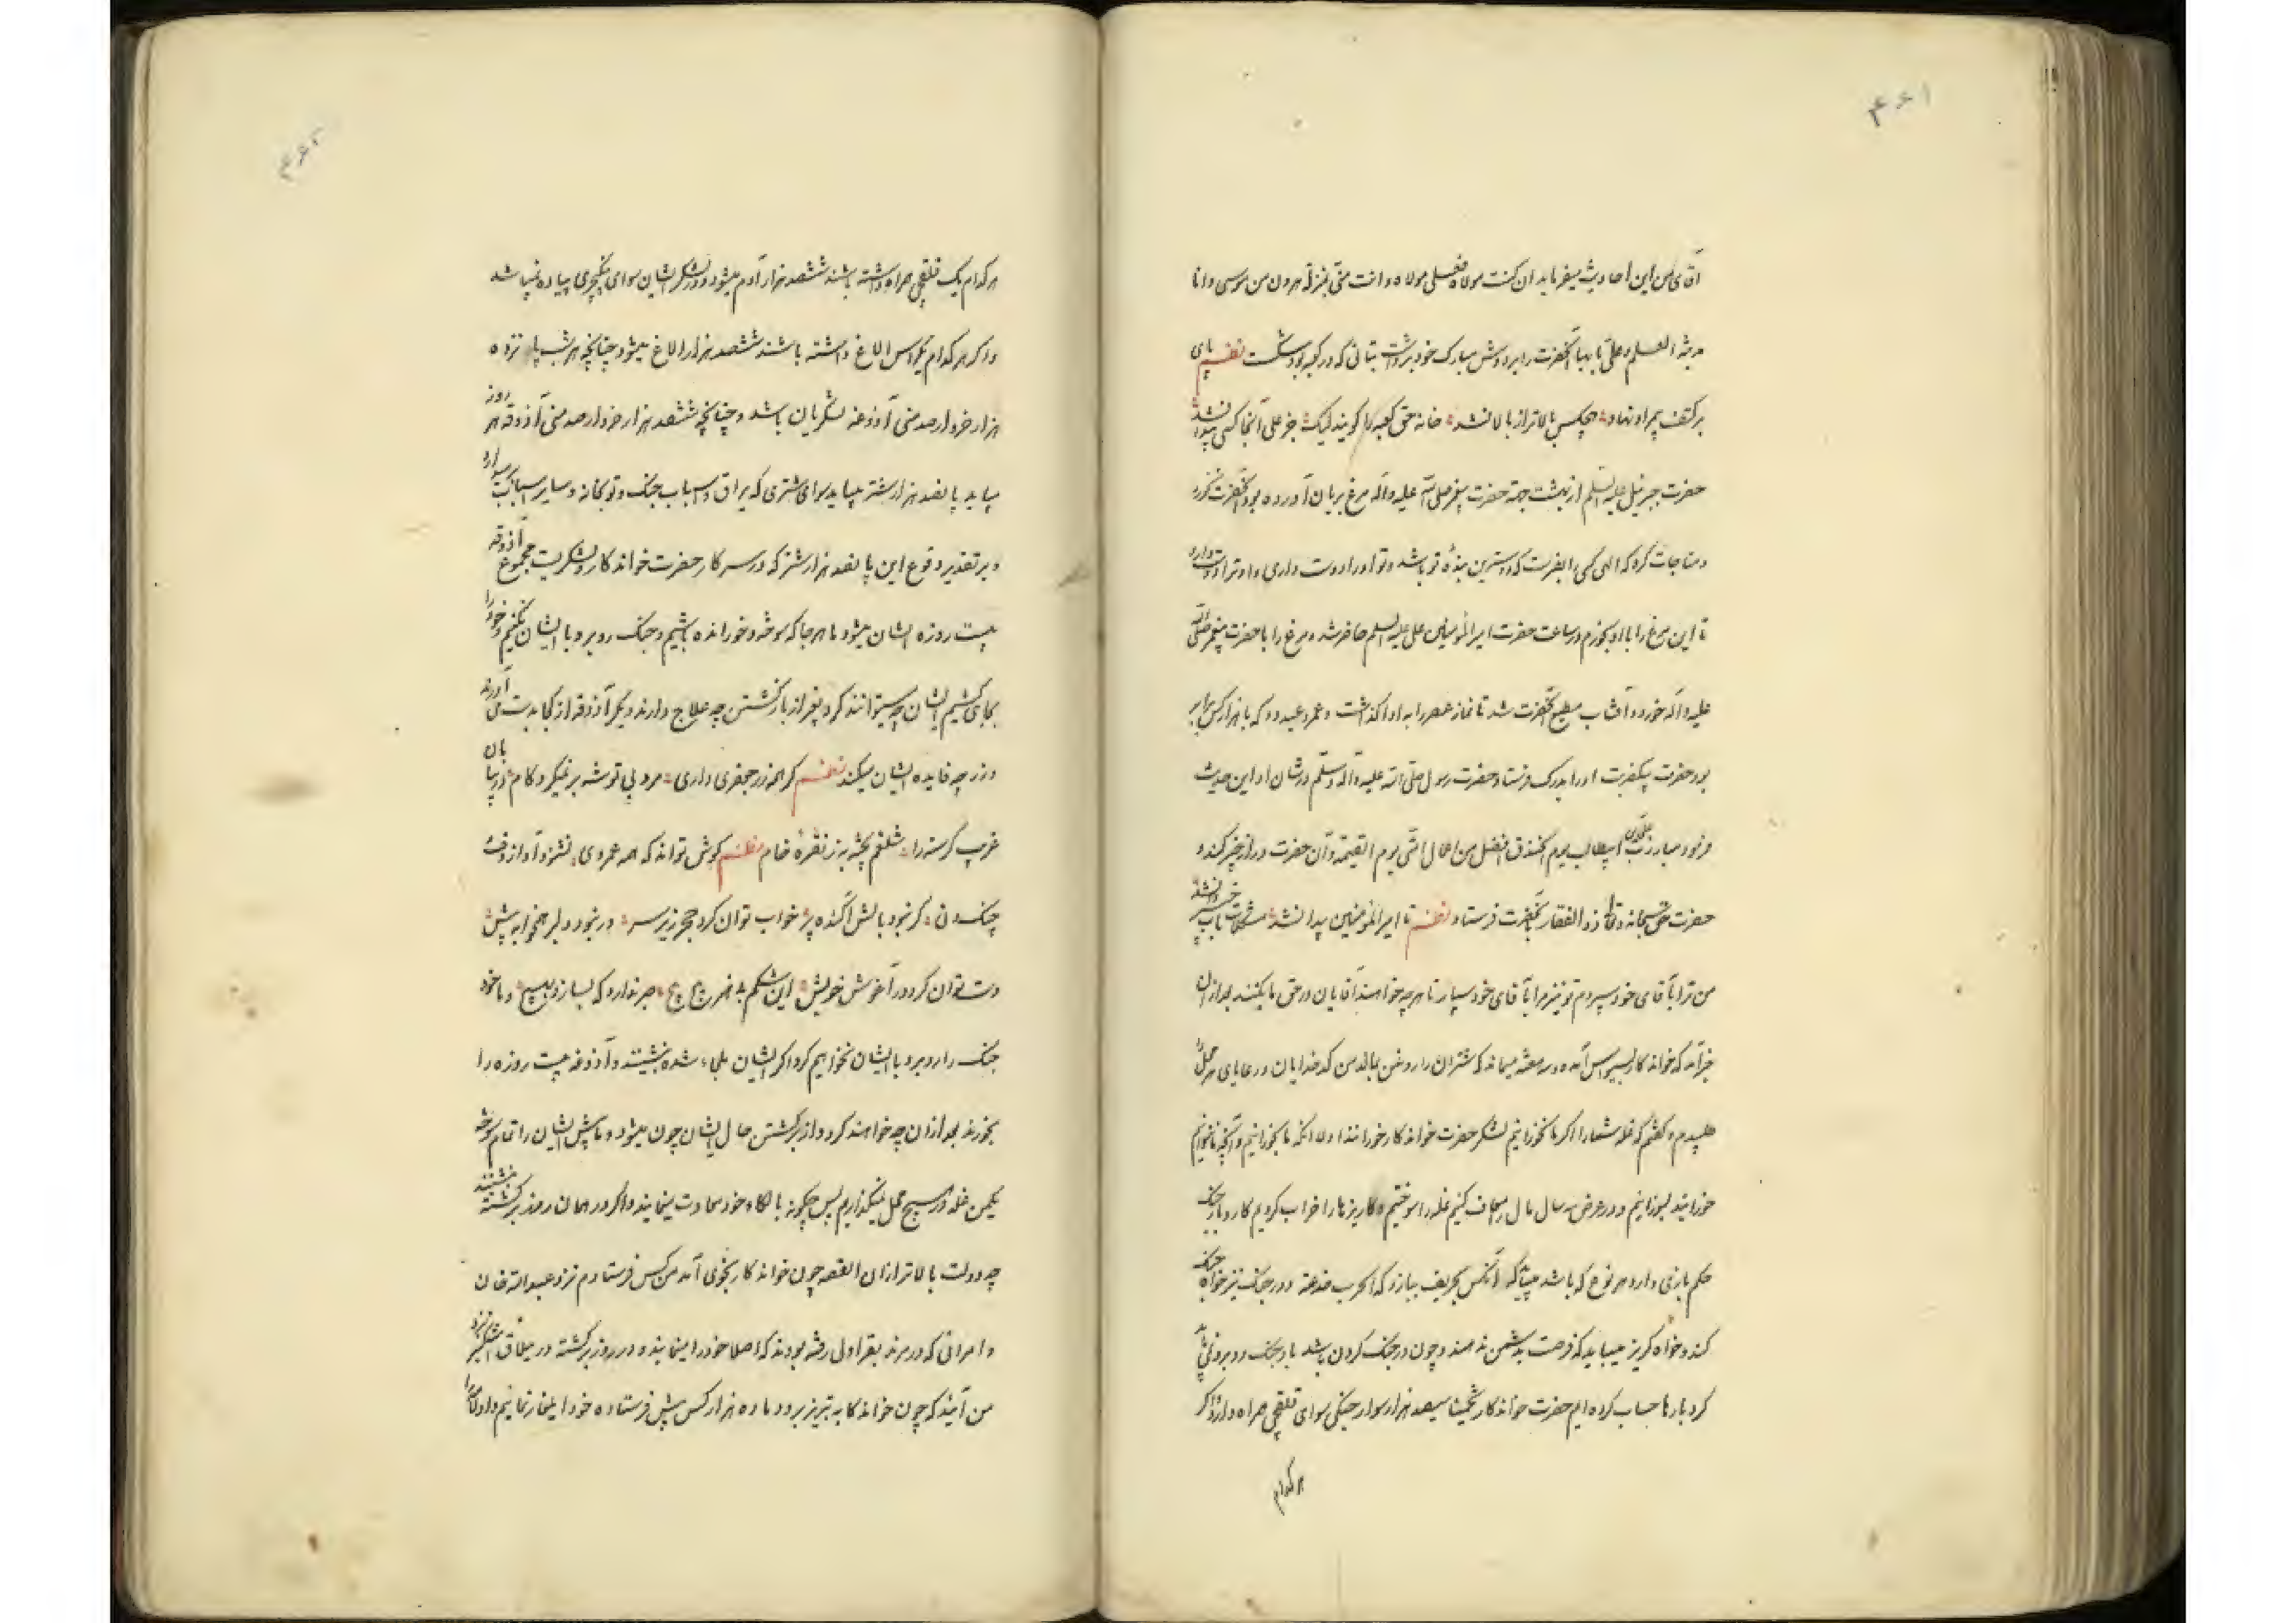 ۴۶۱
آقای من این احادیث میفرماید ان کنت مولاه فعلی مولاه و انت منی بمنزلة هرون من موسی و انا
مدینة العلم و علی بابها آنحضرت را بر دوش مبارک خود برداشت تا بتانی که در کعبه بود شکست نظم پای
بر کتف پیمبر او نهاد هیچکس بالاتر از بالا نشد خانه حق کعبه را گویند لیک جز علی آنجا کسی پیدا نشد
حضرت جبرئیل علیه السلم از بهشت جهة حضرت پیغمبر صلی الله علیه و آله مرغ بریان آورده بود آنحضرت
و مناجات کرد که الهی کسی را بفرست که دوسترین بندهٔ تو باشد و تو او را دوست داری و او ترا دوست دارد
تا این مرغ را با او بخورم در ساعت حضرت امیر المؤمنین علی علیه السلم حاضر شد و مرغ را با حضرت پیغمبر صلی الله
علیه و آله خورد و آفتاب مطیع آنحضرت شد تا نماز عصر را به ادا گذاشت و عمرو عبدود که با هزار کس برابر
بود حضرت بیکضربت او را بدرک فرستاد حضرت رسول صلی الله علیه و آله و سلم در شان او این حدیث
فرمود مبارزت علی بن ابیطالب یوم الخندق افضل من اعمال امتی یوم القیمة و آن حضرت در از خیبر کند و
حضرت حق سبحانه و تعالی ذو الفقار بآنحضرت فرستاد نظم تا امیر المؤمنین پیدا نشد مشکلات باب خیبر وا نشد
من ترا بآقای خود سپردم تو نیز مرا بآقای خود سپار تا هرچه خواهند آقایان در حق ما بکنند بعد از آن
خبر آمد که خواندکار بسیواس آمده و سه هفته میماند که شتران را روغن بمالد من کدخدایان و رعایای هر محل را
طلبیدم و گفتم که غله شما را اگر ما نخورانیم لشکر حضرت خواندکار خورانند اولا آنکه ما بخورانیم و آنچه نتوانیم
خورانید بسوزانیم و در عرض سه سال مال معاف کنیم غله را سوختیم و کاریزها را خراب کردیم کار و بار جنک
حکم بازی دارد هر نوع که باشد میباید که آنکس بحریف ببازد که الحرب خدعة و در جنک نیز خواه جنک
کند و خواه گریز میباید که فرصت بدشمن ندهند و چون در جنک کردن باشد باو جنک روبرو نمی‌باید
کرد بارها حساب کرده‌ایم حضرت خواندکار تخمینا سیصد هزار سوار جنگی سوای قلقچی همراه دارد و اگر
هر کدام
۴۶۲
هر کدام یک قلقچی همراه داشته باشند ششصد هزار آدم میشود و در لشکر ایشان سوای ینگچری پیاده نمیباشد
و اگر هر کدام یکراس الاغ داشته باشند ششصد هزار الاغ میشود چنانچه هر شب پانزده
هزار خروار صد منی آذوغه لشکریان باشد و چنانچه ششصد هزار خروار صد منی آذوقه هر روز
بباید پانصد هزار شتر میباید سوای شتری که یراق و اسباب جنک و توپخانه و سایر اسباب بر میدارد
و بر تقدیر وقوع این پانصد هزار شتر که در سرکار حضرت خواندکار و لشکریست مجموع آذوقه
بیست روزه ایشان میشود ما هر جا که سوخته و خورانده باشیم و جنک روبرو با ایشان نکنیم و خود را
بجای کشیم ایشان چه میتوانند کرد بغیر از بازگشتن چه علاج دارند دیگر آذوقه از کجا بدست می آورند
و زر چه فایده ایشان میکند نظم گر همه زر جعفری داری مرد بی توشه بر نگیرد کام در بیابان
غریب گرسنه را شلغم پخته به ز نقرهٔ خام نظم گوش تواند که همه عمر وی نشنود آواز دف و
چنک و نی گر نبود بالش آکنده پر خواب توان کرد حجر زیر سر ور نبود دلبر همخوابه پیش
دست توان کرد در آغوش خویش این شکم بی هنر پیچ پیچ صبر ندارد که بسازد بهیچ و ما خود
جنک را روبرو با ایشان نخواهیم کرد اگر ایشان ملجاء شده بنشینند و آذوغه بیست روزه را
بخورند بعد از آن چه خواهند کرد و از برگشتن حال ایشان چون میشود و ما پیش ایشان را تمام سوخته
یکمن غله در هیچ محل نمیگذاریم پس چگونه با لکاء خود معاودت مینمایند و اگر در همان روز برگشتند
چه دولت بالاتر از آن القصه چون خواندکار بخوی آمد من کس فرستادم نزد عبدالله خان
و امرائی که در مرند بقراولی رفته بودند که اصلا خود را ننمایند و در روز برگشته در ییلاق اشکنبر نزد
من آیند که چون خواندکار به تبریز برود ما ده هزار کس پیش فرستاده خود ایلغار نمائیم و اولاد